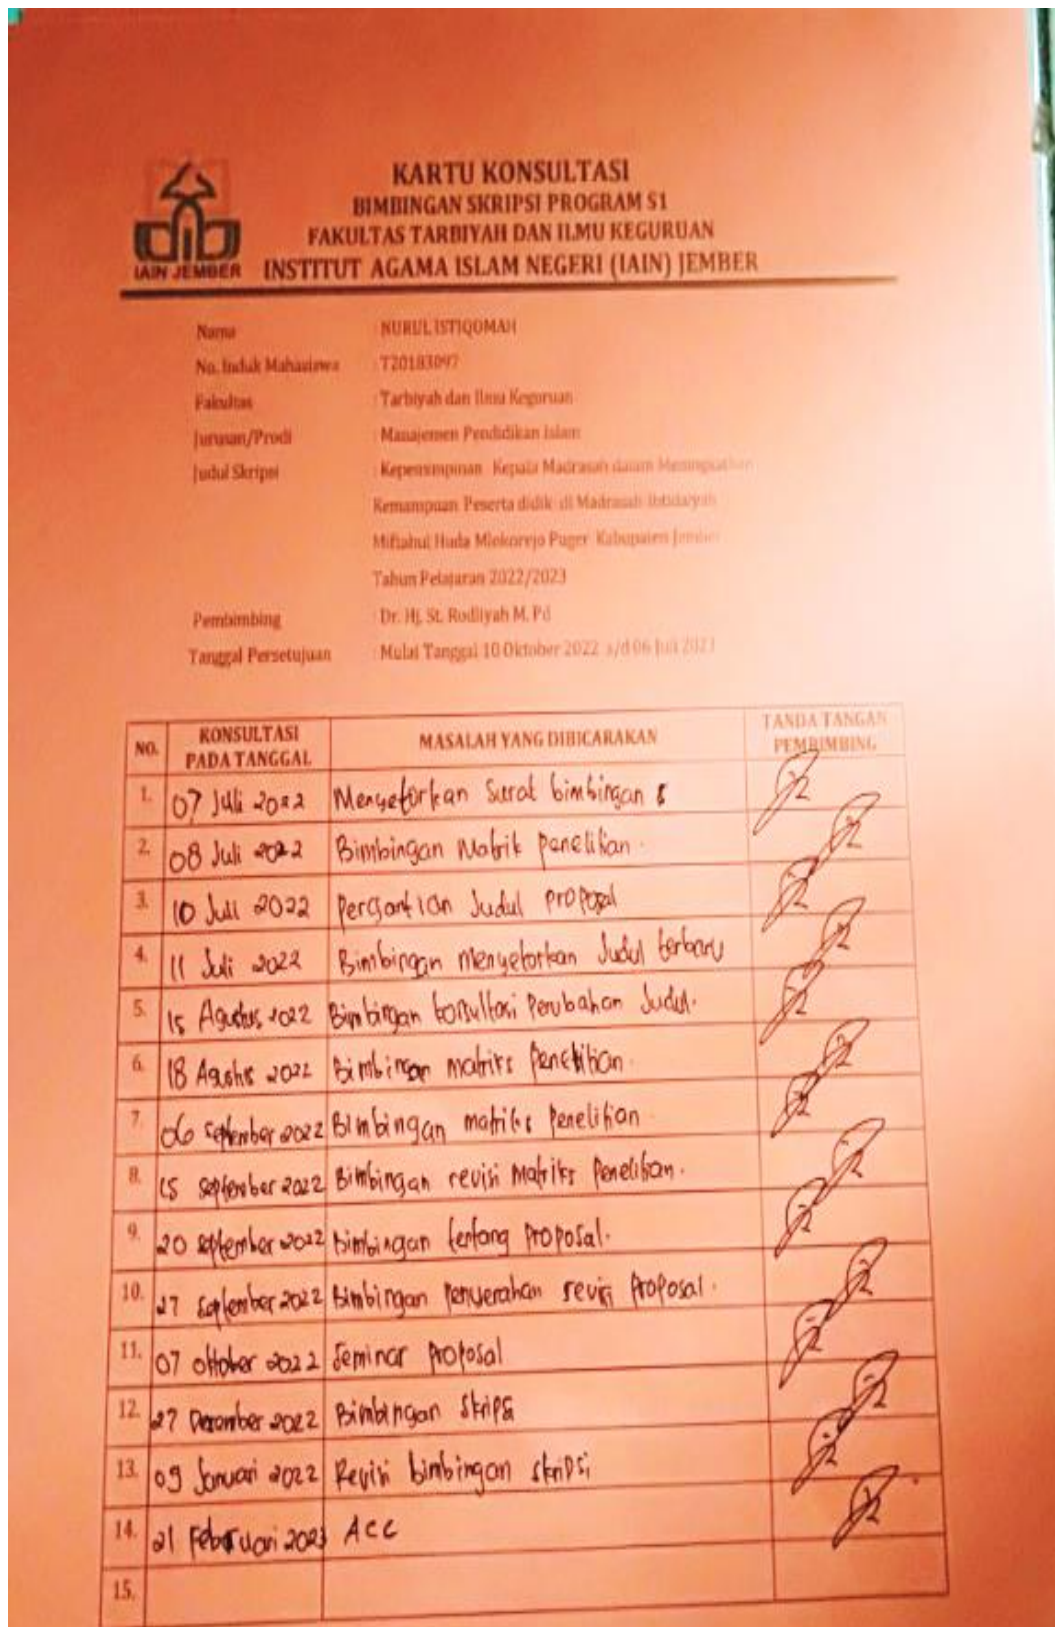 KARTU KONSULTASI
BIMBINGAN SKRIPSI PROGRAM S1
FAKULTAS TARBIYAH DAN ILMU KEGURUAN
INSTITUT AGAMA ISLAM NEGERI (IAIN) JEMBER
IAIN JEMBER
Nama : NURUL ISTIQOMAH
No. Induk Mahasiswa : T20183097
Fakultas : Tarbiyah dan Ilmu Keguruan
Jurusan/Prodi : Manajemen Pendidikan Islam
Judul Skripsi : Kepemimpinan Kepala Madrasah dalam Meningkatkan
Kemampuan Peserta didik di Madrasah Ibtidaiyah
Miftahul Huda Mlokorejo Puger Kabupaten Jember
Tahun Pelajaran 2022/2023
Pembimbing : Dr. Hj. St. Rodliyah M. Pd
Tanggal Persetujuan : Mulai Tanggal 10 Oktober 2022 s/d 06 Juli 2023
NO. KONSULTASI PADA TANGGAL MASALAH YANG DIBICARAKAN TANDA TANGAN PEMBIMBING
1. 07 Juli 2022 Menyetorkan Surat bimbingan
2. 08 Juli 2022 Bimbingan Matrik penelitian.
3. 10 Juli 2022 Pergantian Judul proposal
4. 11 Juli 2022 Bimbingan menyetorkan Judul terbaru
5. 15 Agustus 2022 Bimbingan konsultasi Perubahan Judul.
6. 18 Agustus 2022 Bimbingan matriks Penelitian.
7. 06 September 2022 Bimbingan matriks Penelitian
8. 15 September 2022 Bimbingan revisi Matriks Penelitian.
9. 20 September 2022 Bimbingan tentang Proposal.
10. 27 September 2022 Bimbingan Penyerahan revisi Proposal.
11. 07 Oktober 2022 Seminar Proposal
12. 27 Desember 2022 Bimbingan Skripsi
13. 09 Januari 2022 Revisi bimbingan skripsi
14. 21 Februari 2023 ACC
15.